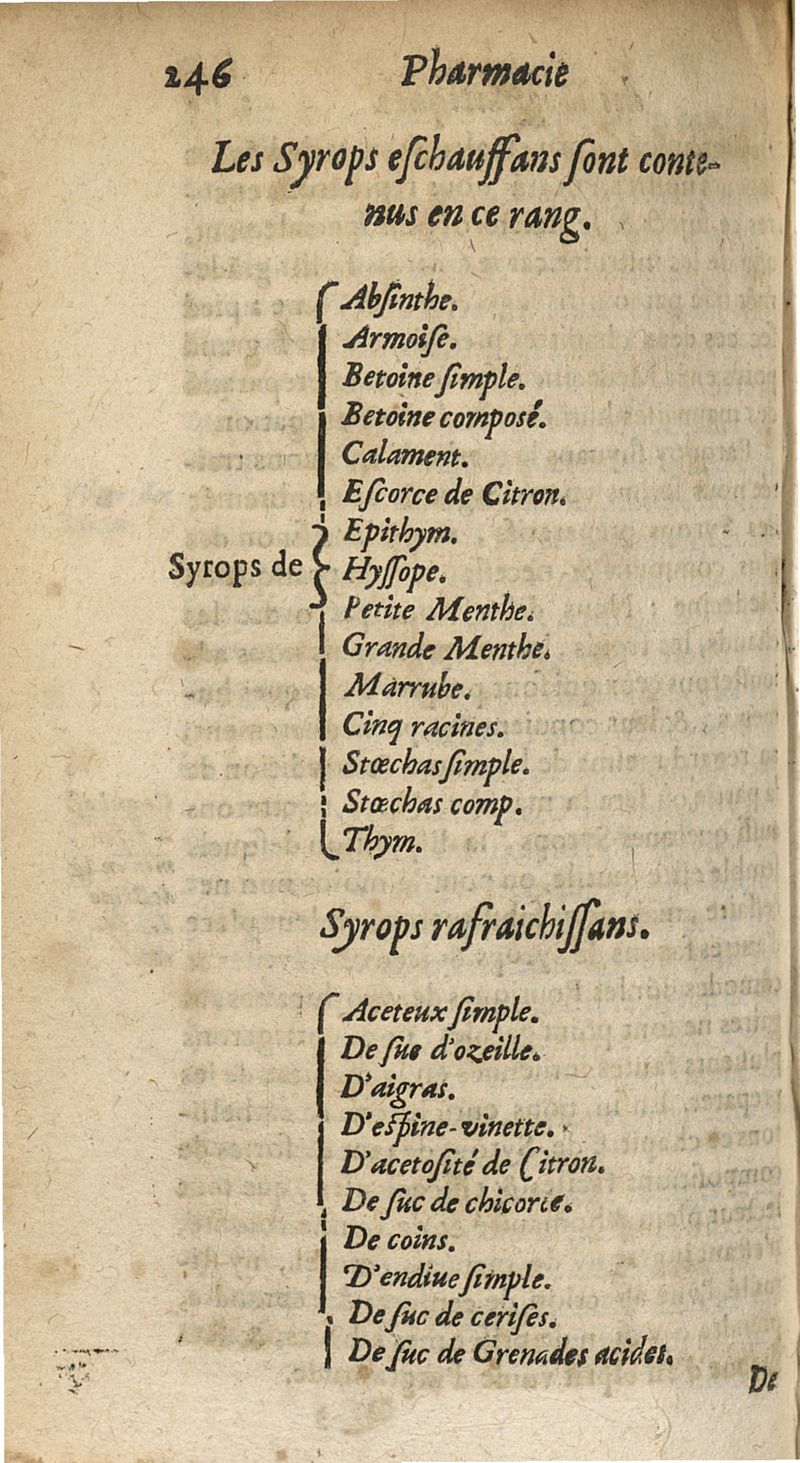 246 Pharmacie
Les Syrops eſchauffans ſont conte-
nus en ce rang.
Abſinthe.
Armoiſe.
Betoine ſimple.
Betoine composé.
Calament.
Eſcorce de Citron.
Epithym.
Syrops de Hyſſope.
Petite Menthe.
Grande Menthe.
Marrube.
Cinq racines.
Stœchas ſimple.
Stœchas comp.
Thym.
Syrops rafraichiſſans.
Aceteux ſimple.
De ſuc d'ozeille.
D'aigras.
D'eſpine-vinette.
D'acetoſité de Citron.
De ſuc de chicorée.
De coins.
D'endiue ſimple.
De ſuc de ceriſes.
De ſuc de Grenades acides.
De